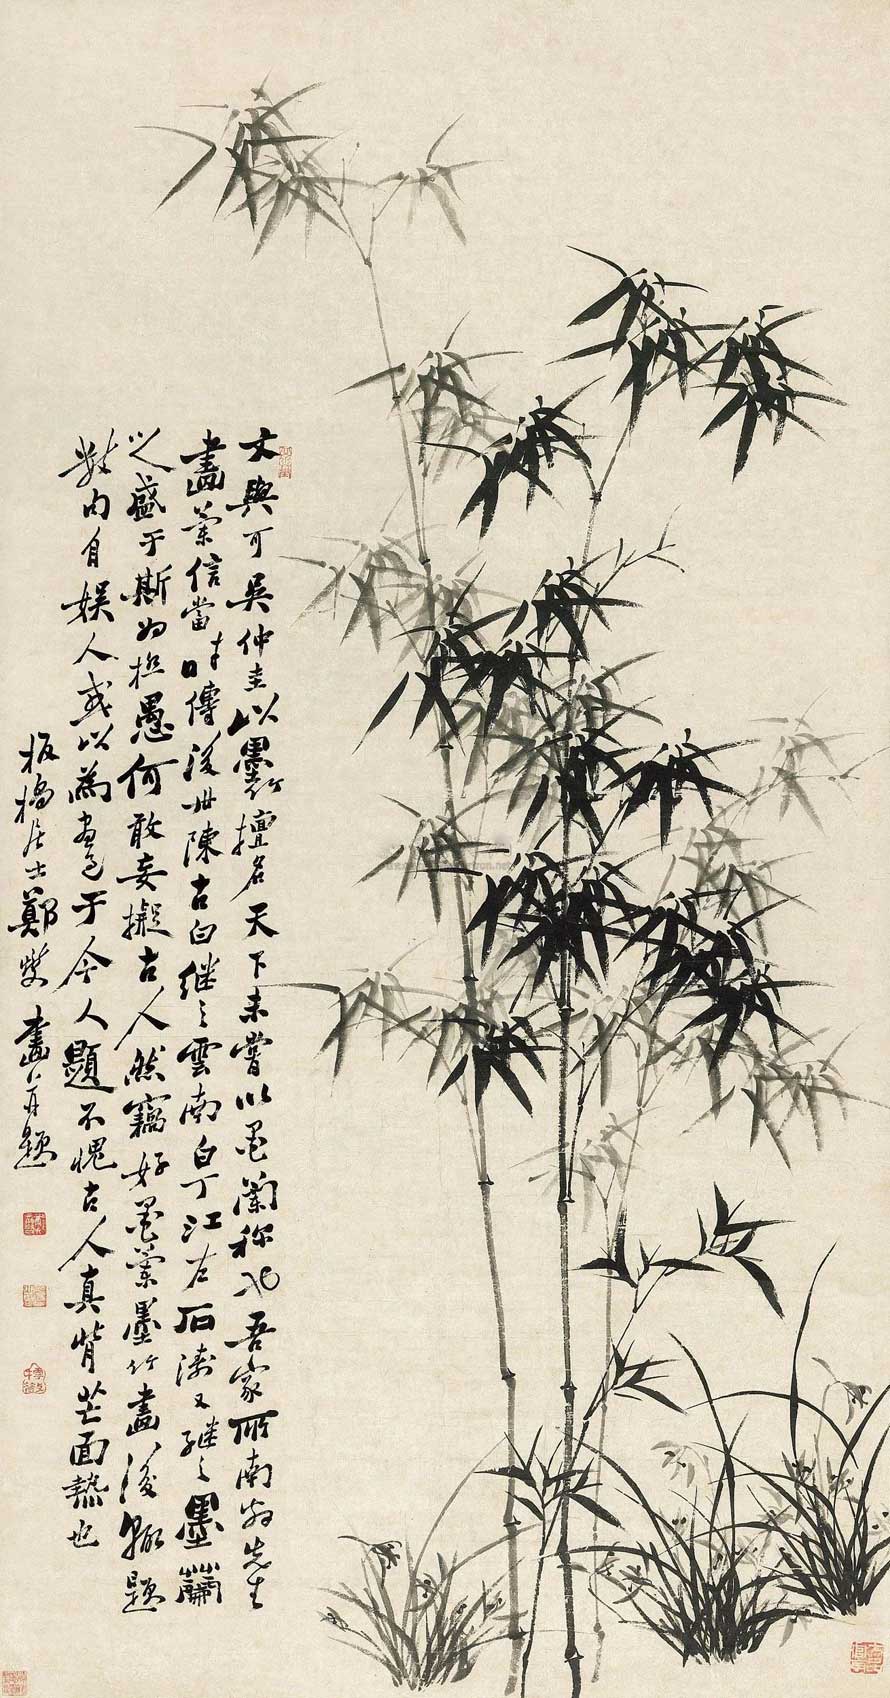 文與可吳仲圭以墨竹擅名天下未嘗以墨蘭称也吾家所南翁先生
畫蘭信當時傳後世陳古白継之雲南白丁江左石濤又継之墨蘭
之盛于斯为極愚何敢妄擬古人然竊好墨蘭墨竹畫後輒題
數句自娱人或以為畫過于今人題不愧古人真背芒面熱也
板橋居士鄭燮畫并題